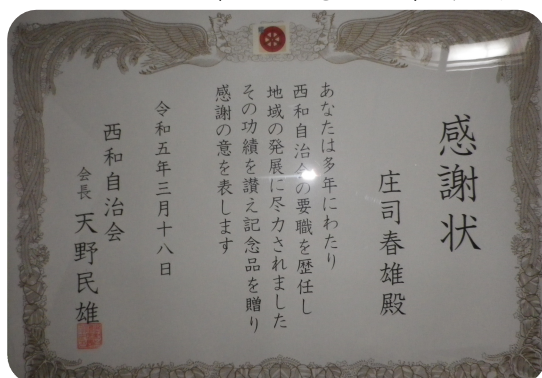 感謝状
庄司春雄殿
あなたは多年にわたり
西和自治会の要職を歴任し
地域の発展に尽力されました
その功績を讃え記念品を贈り
感謝の意を表します
令和五年三月十八日
西和自治会
会長 天野民雄